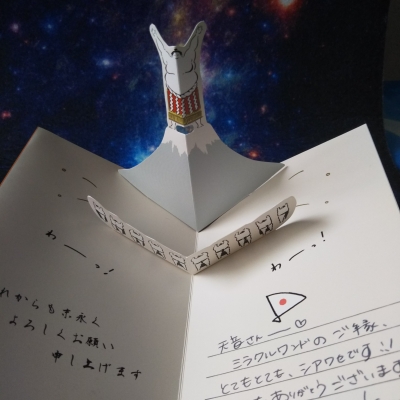 わーっ!
れからも末永く
よろしくお願い
申し上げます
わーっ!
天音さん——♡
ミラクルワンドのご縁、
とてもとても、シアワセです!!
ありがとうございます